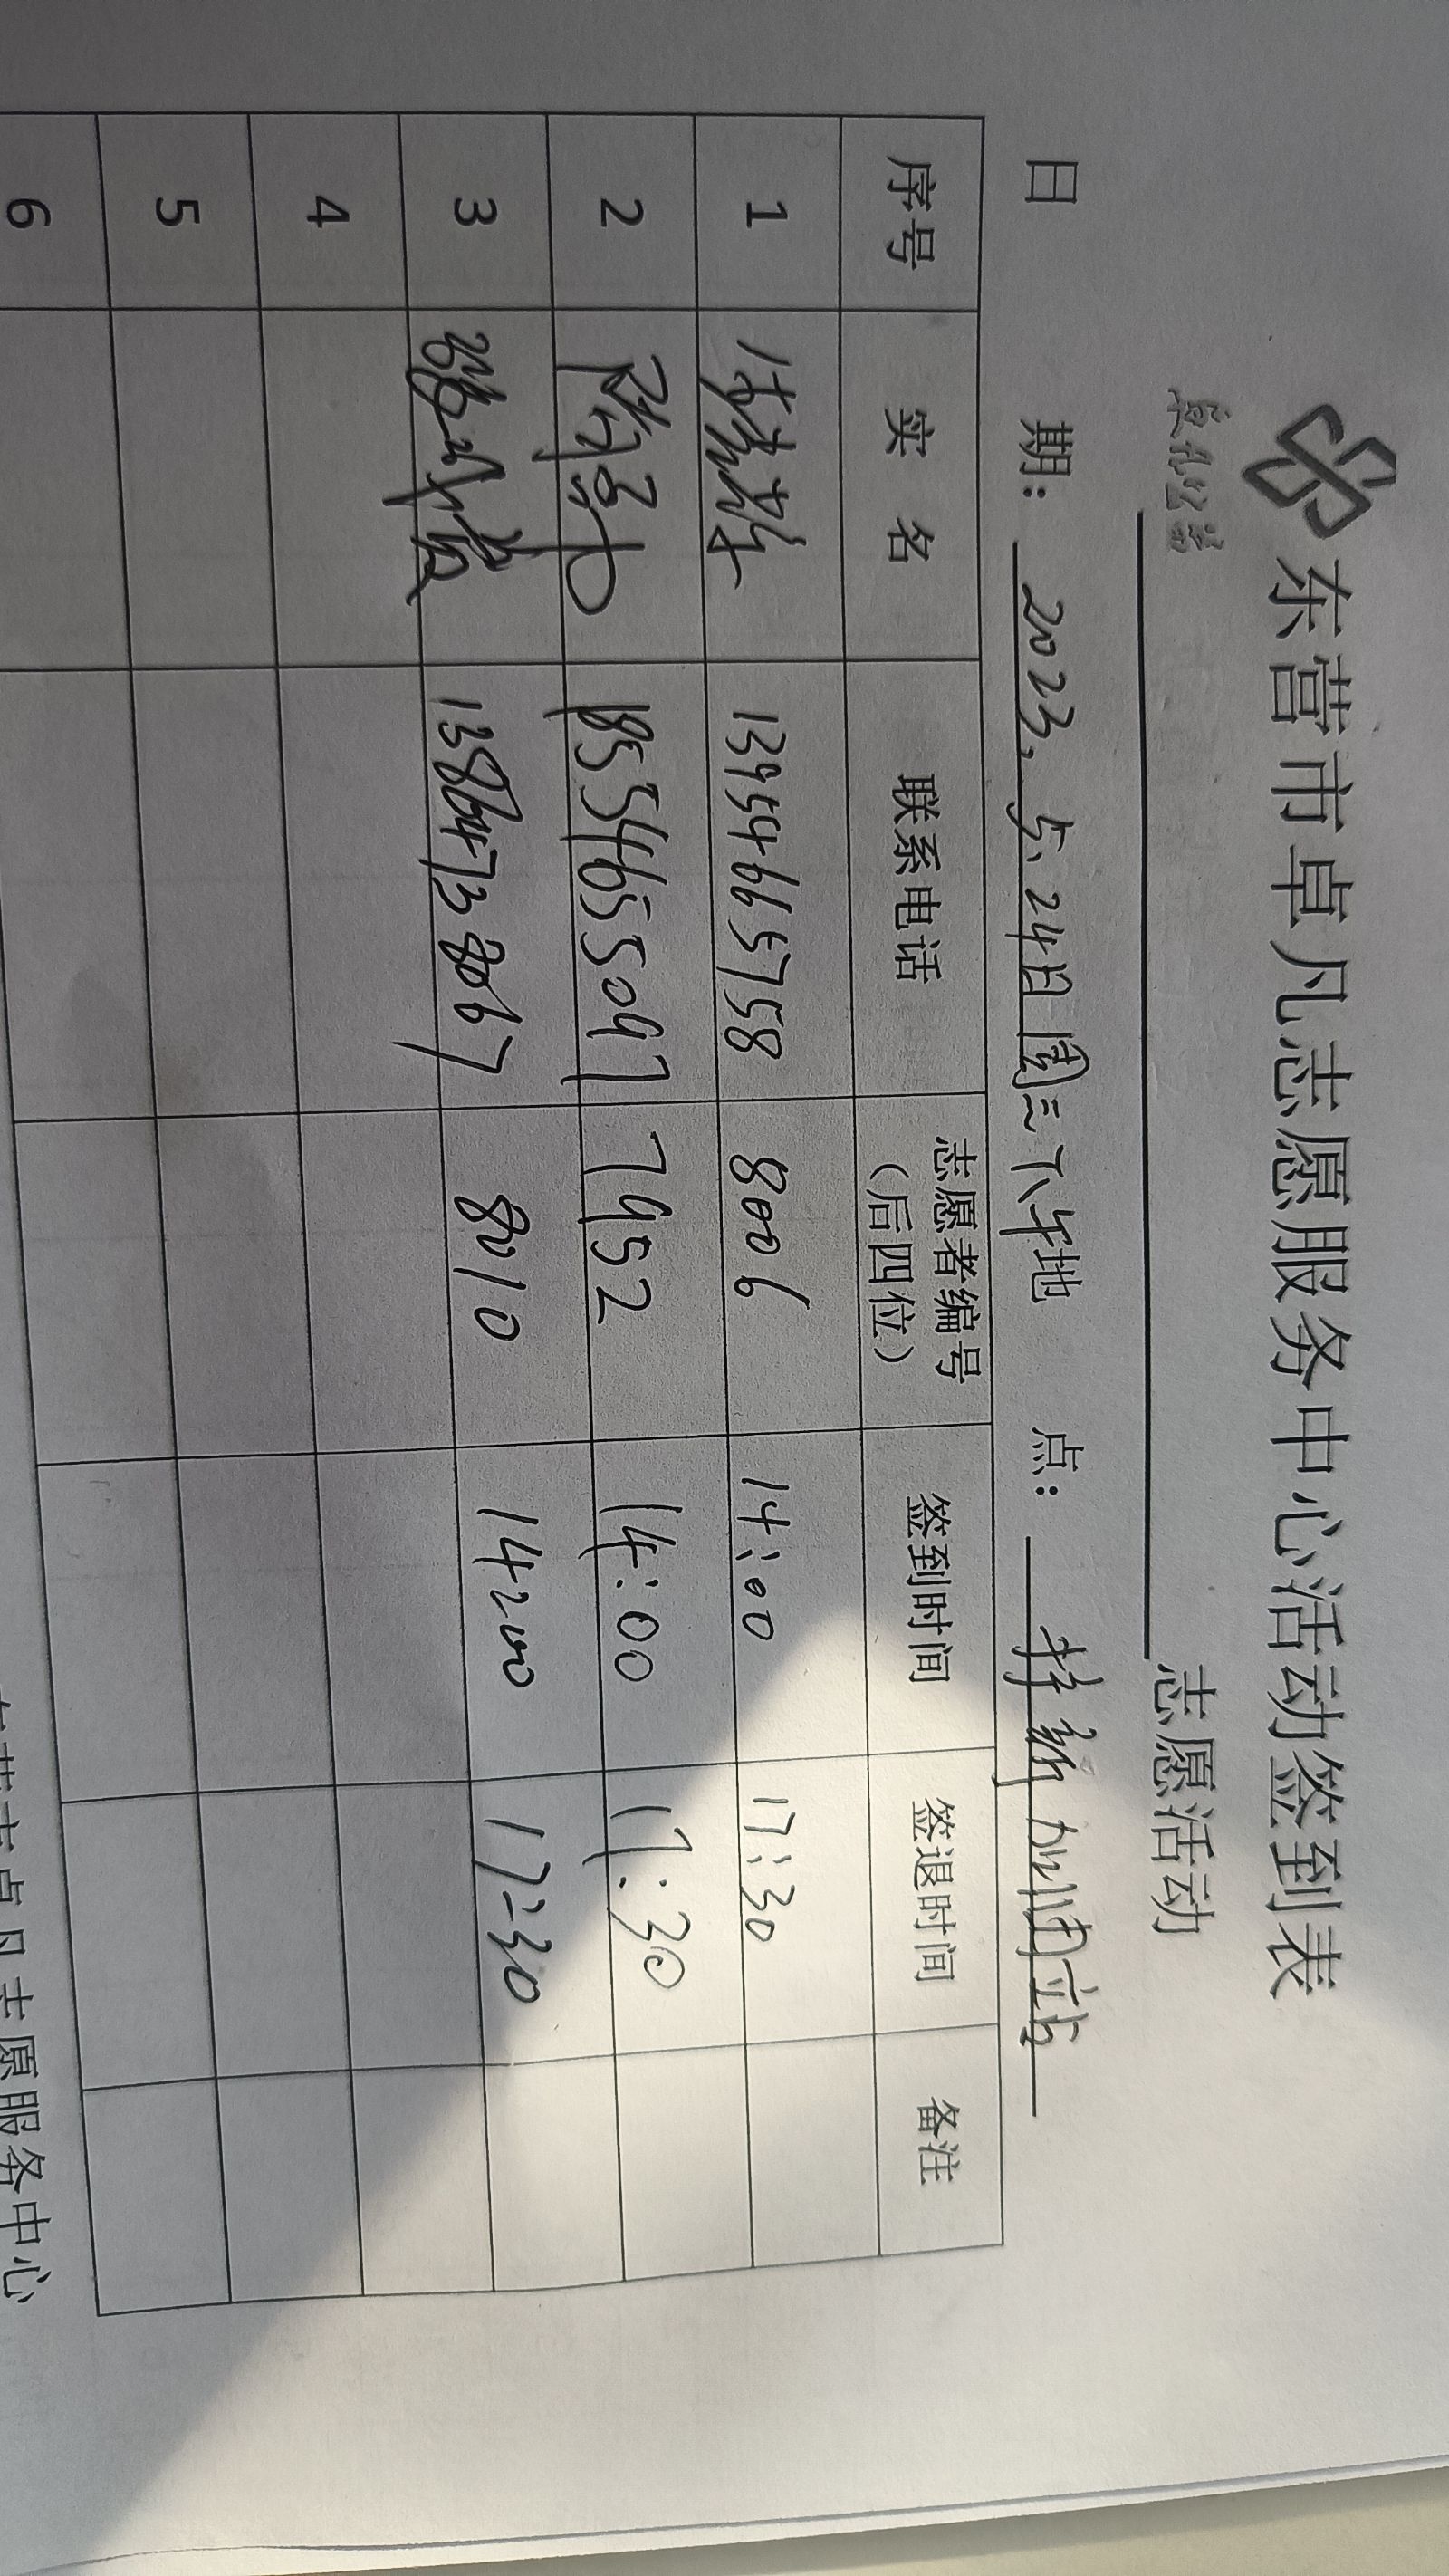 东营市卓凡志愿服务中心活动签到表
卓凡公益
志愿活动
日 期: 2023.5.24日周三下午 地 点:
序号 实 名 联系电话 志愿者编号(后四位) 签到时间 签退时间 备注
1 13954665758 8006 14:00 17:30
2 18554655097 7952 14:00 17:30
3 13864738067 8010 14:00 17:30
4
5
6
东营市卓凡志愿服务中心